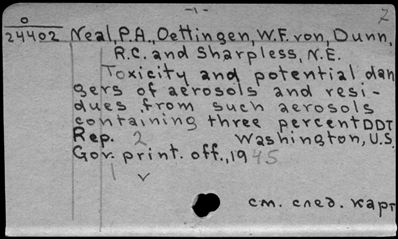 -1-
7
0
24402 Neal, P.A., Oettingen, W.F. von, Dunn,
R.C. and Sharpless, N.E.
Toxicity and potential dan
gers of aerosols and resi-
dues from such aerosols
containing three percent DDT
Rep. 2 Washington, U.S.
Gov. print. off., 1945
1 v
см. след. карт